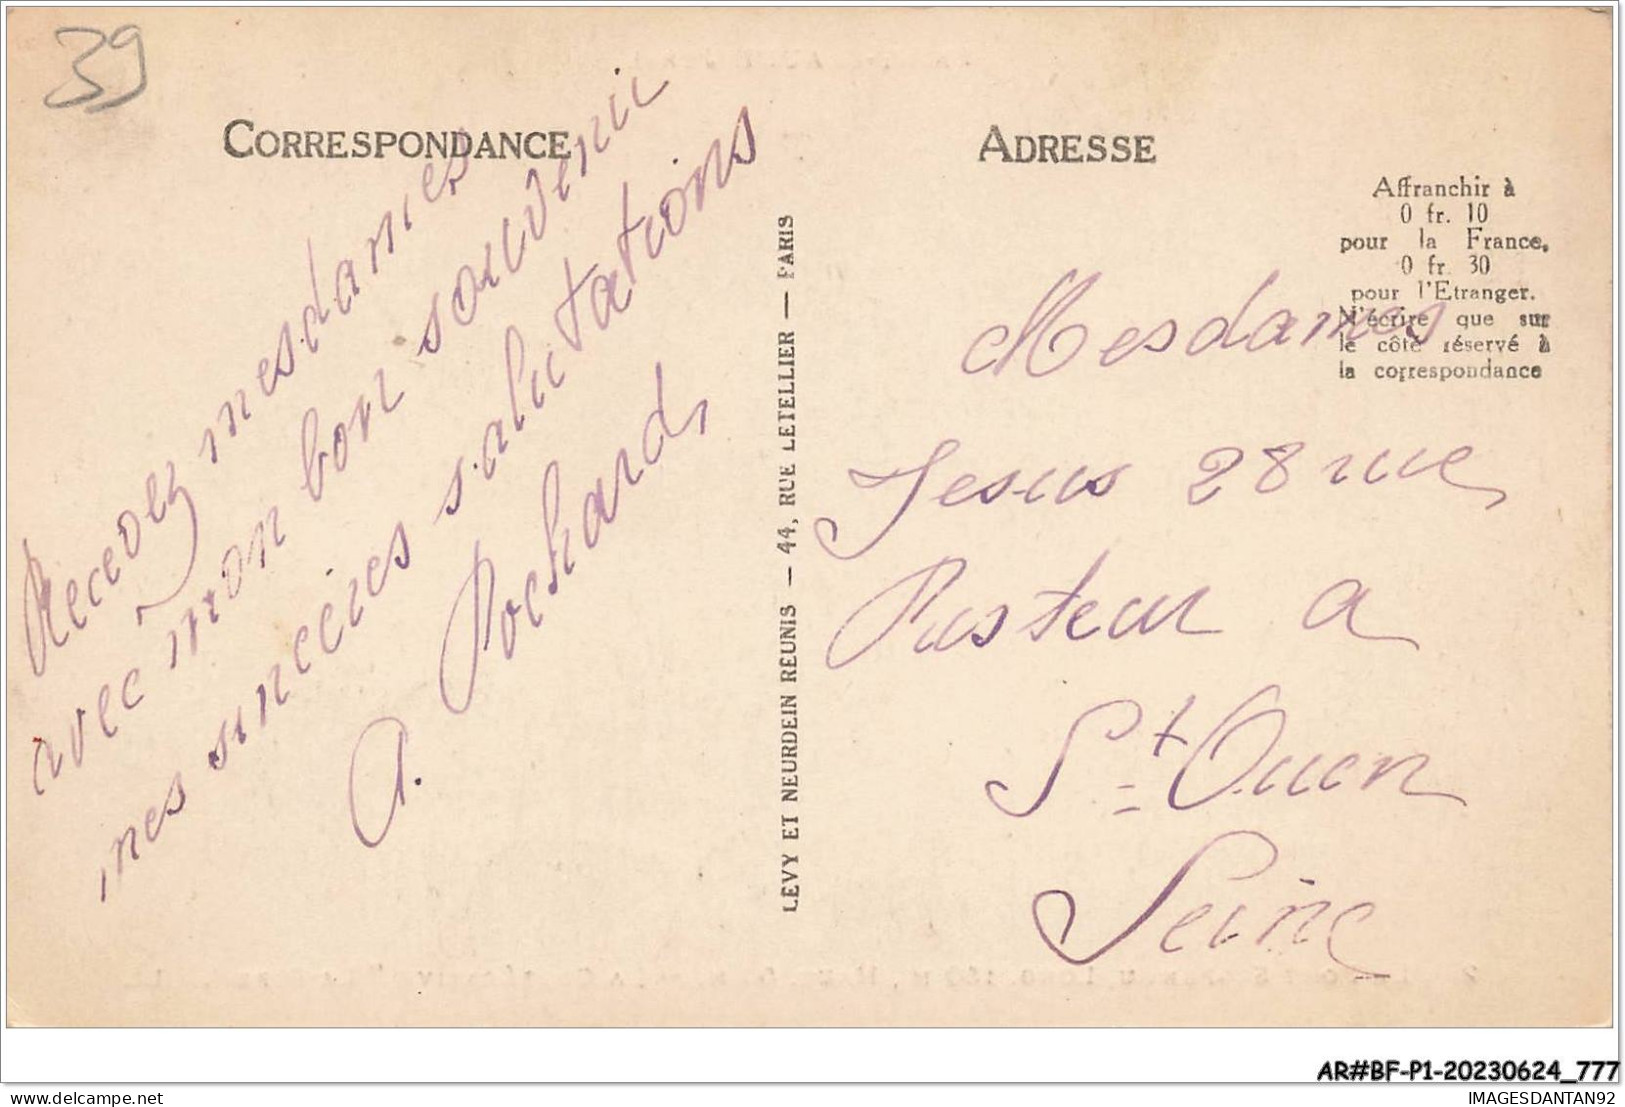 39
CORRESPONDANCE
Recevez mesdames
avec mon bon souvenir
mes sincères salutations
A. Pochard,
LEVY ET NEURDEIN REUNIS — 44, RUE LETELLIER — PARIS
ADRESSE
Affranchir à
0 fr. 10
pour la France,
0 fr. 30
pour l'Etranger.
N'écrire que sur
le côté réservé à
la correspondance
Mesdames
Jesus 28 rue
Pasteur a
St Ouen
Seine
AR#BF-P1-20230624_777
IMAGESDANTAN92